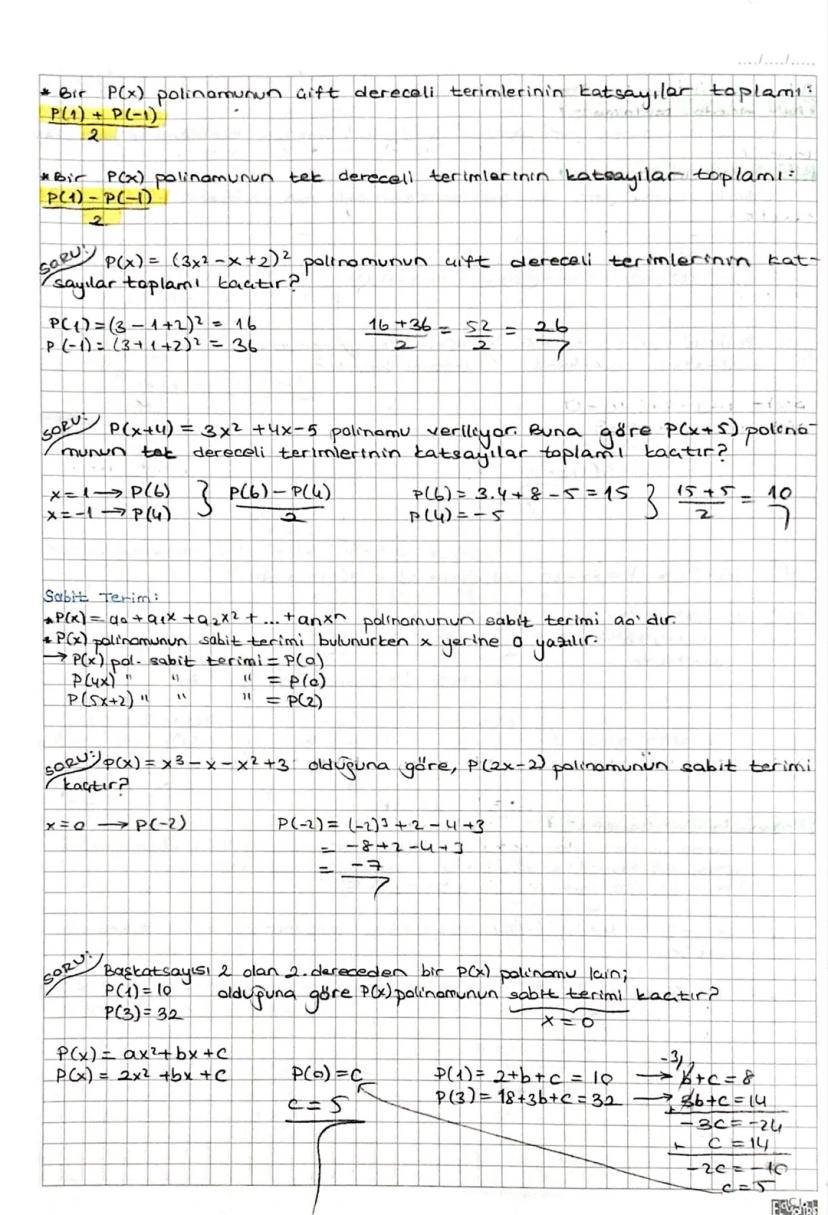 ..../..../.....
* Bir P(x) polinomunun çift dereceli terimlerinin katsayılar toplamı:
P(1) + P(-1)
2
* Bir P(x) polinomunun tek dereceli terimlerinin katsayılar toplamı:
P(1) - P(-1)
2
SORU: P(x) = (3x² - x + 2)² polinomunun çift dereceli terimlerinin kat-
sayılar toplamı kaçtır?
P(1) = (3 - 1 + 2)² = 16
P(-1) = (3 + 1 + 2)² = 36
16 + 36 / 2 = 52 / 2 = 26
SORU: P(x+4) = 3x² + 4x - 5 polinomu veriliyor. Buna göre P(x+5) polino-
munun tek dereceli terimlerinin katsayılar toplamı kaçtır?
x = 1 → P(6)
x = -1 → P(4)
} P(6) - P(4) / 2
P(6) = 3.4 + 8 - 5 = 15
P(4) = -5
} 15 + 5 / 2 = 10
Sabit Terim:
* P(x) = a₀ + a₁x + a₂x² + ... + anxⁿ polinomunun sabit terimi a₀'dır.
* P(x) polinomunun sabit terimi bulunurken x yerine 0 yazılır.
→ P(x) pol. sabit terimi = P(0)
P(4x) " " " = P(0)
P(5x+2) " " " = P(2)
SORU: P(x) = x³ - x - x² + 3 olduğuna göre, P(2x-2) polinomunun sabit terimi
kaçtır?
x = 0 → P(-2)
P(-2) = (-2)³ + 2 - 4 + 3
= -8 + 2 - 4 + 3
= -7
SORU: Başkatsayısı 2 olan 2. dereceden bir P(x) polinomu için;
P(1) = 10
P(3) = 32
olduğuna göre P(x) polinomunun sabit terimi kaçtır?
x = 0
P(x) = ax² + bx + c
P(x) = 2x² + bx + c
P(0) = c
c = 5
P(1) = 2 + b + c = 10 → -3/ b + c = 8
P(3) = 18 + 3b + c = 32 → 3b + c = 14
+
-3c = -24
+ c = 14
-2c = -10
c = 5